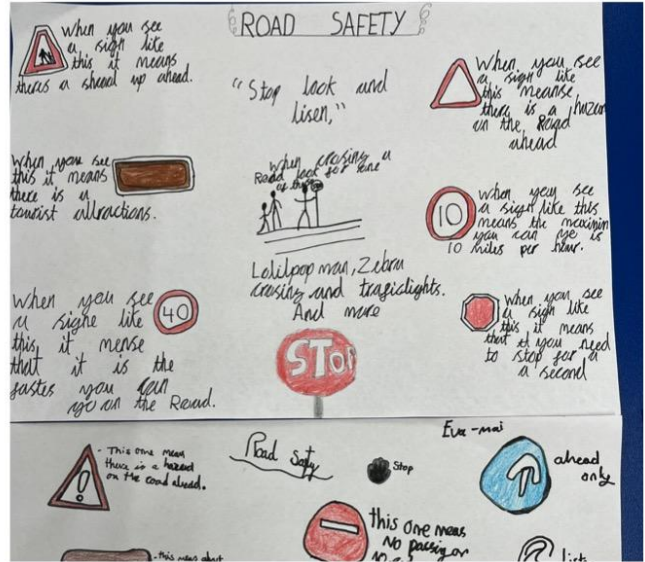 ROAD SAFETY
When you see
a sign like
this it means
theres a shead up ahead.
"Stop look and
lisen,"
When you see
a sign like
this meanse,
there is a hazor
on the Road
ahead
When you see
this it means
there is a
tourist attractions.
When crosing a
Road look for one
of these
10
When you see
a sign like this
means the maximin
you can go is
10 miles per hour.
Lolilpop man, Zebra
crosing and trafficlights.
And more
When you see
a signe like
this, it mense
that it is the
fastes you can
go on the Road.
40
STOP
When you see
a sign like
this it means
that you need
to stop for a
a second
Road Safty
Eva-mai
- This one mean
there is a hazard
on the road ahead.
!
Stop
ahead
only
this one means
NO passing or
- this means about